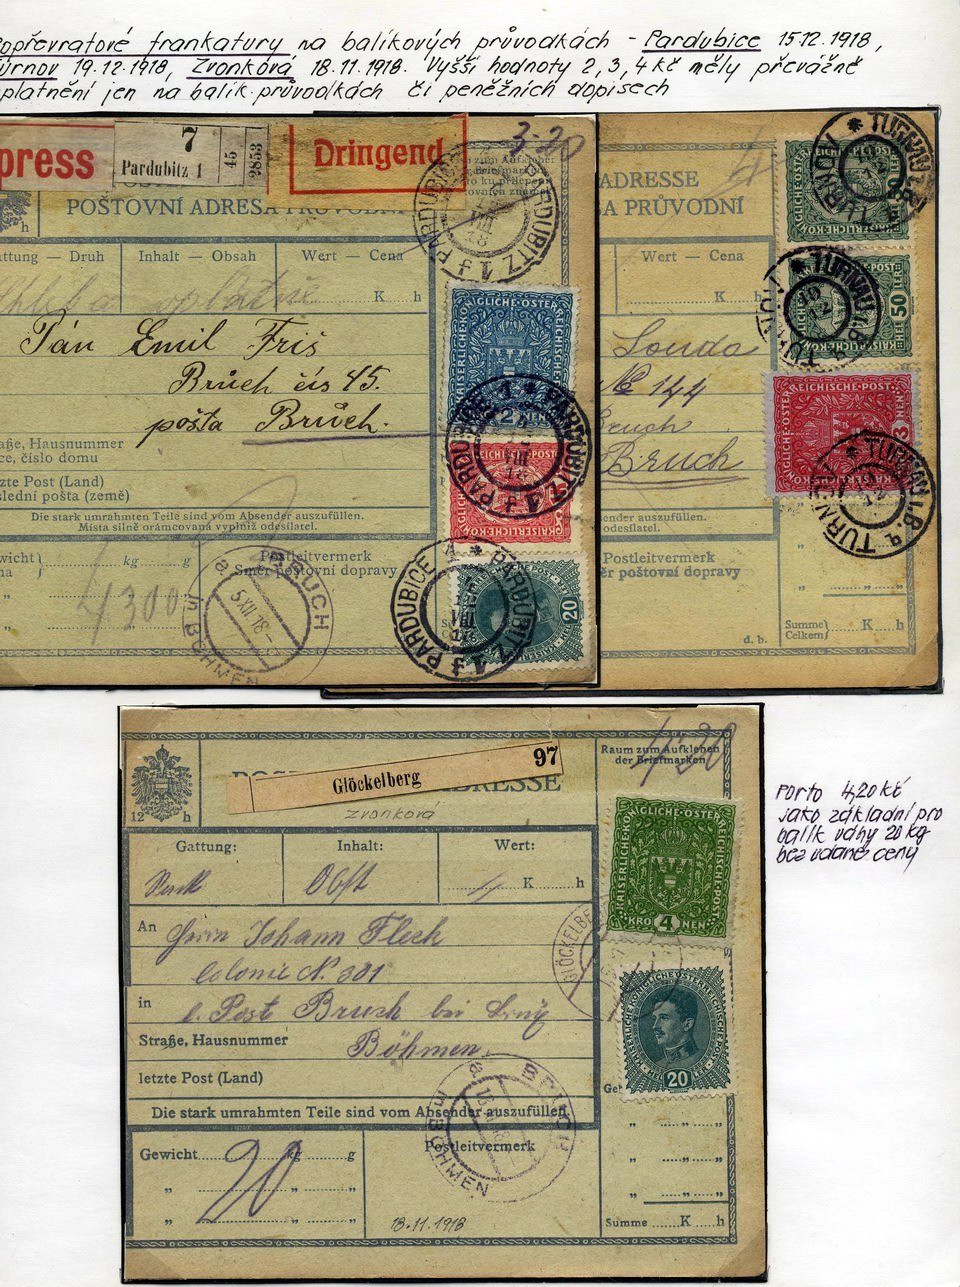 Popřevratové frankatury na balíkových průvodkách - Pardubice 15.12.1918,
Turnov 19.12.1918, Zvonková 18.11.1918. Vyšší hodnoty 2,3,4 kč měly převážně
uplatnění jen na balík.průvodkách či peněžních dopisech
press
7
Pardubitz 1
45
2853
Dringend
3·20
POŠTOVNÍ ADRESA PRŮVODNÍ
h
attung — Druh
Inhalt — Obsah
Wert — Cena
K h
Pán Emil Friš
Brüch čís 45.
pošta Brüch.
aße, Hausnummer
ce, číslo domu
tzte Post (Land)
slední pošta (země)
Die stark umrahmten Teile sind vom Absender auszufüllen.
Místa silně orámcovaná vyplniž odesílatel.
ewicht
na
kg g
4300
Postleitvermerk
Směr poštovní dopravy
BRUCH
a
5.XII.18
in BÖHMEN
PARDUBICE 1 * PARDUBITZ 1
KAISERLICHE KÖNIGLICHE ÖSTERREICHISCHE POST
2
PARDUBICE 1 * PARDUBITZ 1
20
PARDUBICE * PARDUBITZ 1
4
ADRESSE
A PRŮVODNÍ
Wert — Cena
K h
Louda
No 144
Bruch
Bruch
auszufüllen.
odesílatel.
Postleitvermerk
Směr poštovní dopravy
Summe
Celkem
K h
d. b.
50
TURNOV
50
TURNOV
19
12
KAISERLICHE KÖNIGLICHE ÖSTERREICHISCHE POST
3
TURNOV
Glöckelberg
97
Raum zum Aufkleben
der Briefmarken
4·20
12 h
ADRESSE
zvonková
Gattung:
Inhalt:
Wert:
Obst
K h
An
Herrn Johann Flech
Colonie N. 301
in
l. Post Bruch bei
Straße, Hausnummer
Böhmen.
letzte Post (Land)
Die stark umrahmten Teile sind vom Absender auszufüllen.
Gewicht kg g
20
Postleitvermerk
18.11.1918
KAISERLICHE KÖNIGLICHE ÖSTERREICHISCHE POST
KRO 4 NEN
GLÖCKELBERG
20
BRUCH
a
in BÖHMEN
Summe K h
Porto 4,20 kč
jako základní pro
balík váhy 20 kg
bez udané ceny